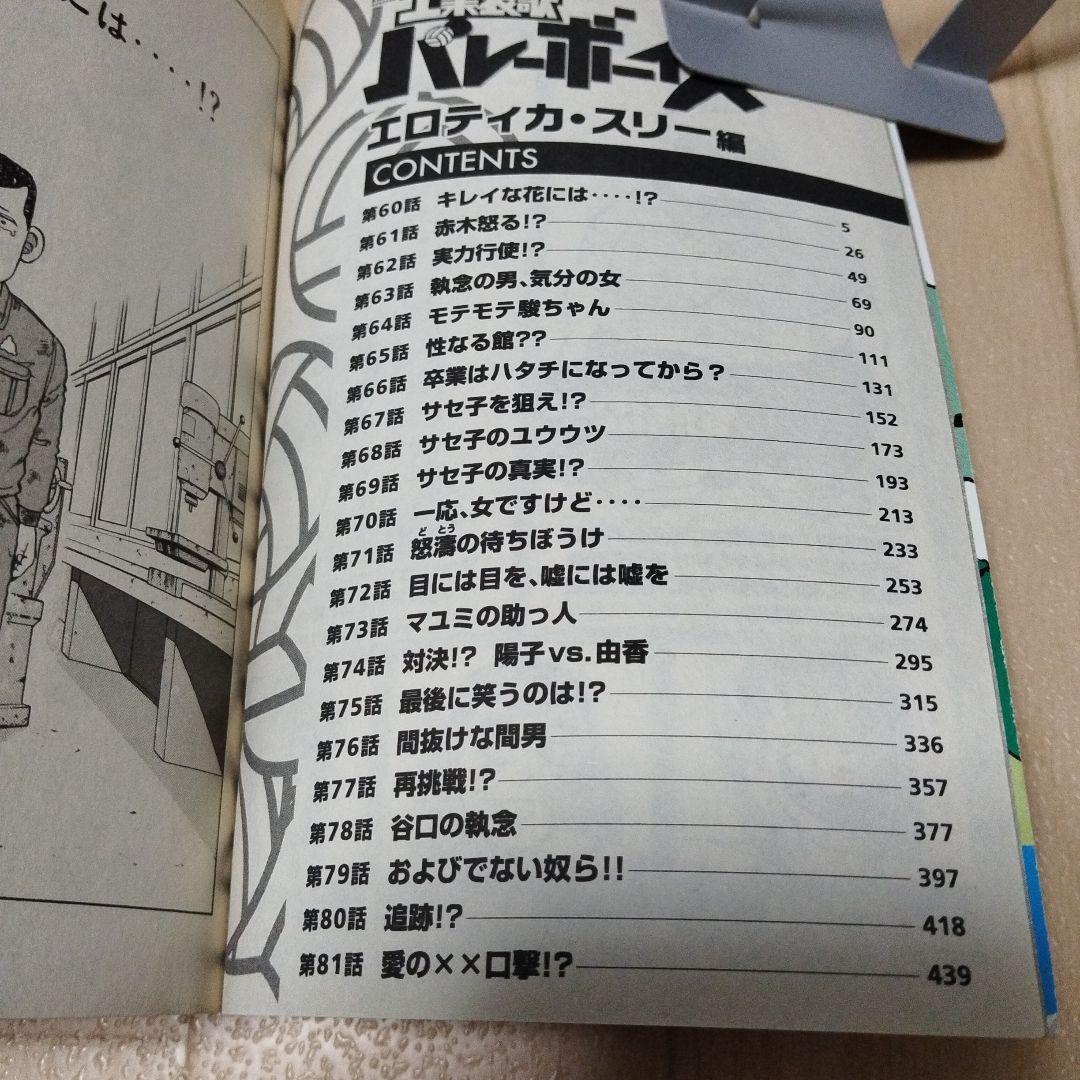 には‥‥!?
工業哀歌
バレーボーイズ
エロティカ・スリー編
CONTENTS
第60話 キレイな花には‥‥!? 5
第61話 赤木怒る!? 26
第62話 実力行使!? 49
第63話 執念の男、気分の女 69
第64話 モテモテ駿ちゃん 90
第65話 性なる館?? 111
第66話 卒業はハタチになってから? 131
第67話 サセ子を狙え!? 152
第68話 サセ子のユウウツ 173
第69話 サセ子の真実!? 193
第70話 一応、女ですけど‥‥ 213
第71話 怒濤の待ちぼうけ 233
第72話 目には目を、嘘には嘘を 253
第73話 マユミの助っ人 274
第74話 対決!? 陽子vs.由香 295
第75話 最後に笑うのは!? 315
第76話 間抜けな間男 336
第77話 再挑戦!? 357
第78話 谷口の執念 377
第79話 およびでない奴ら!! 397
第80話 追跡!? 418
第81話 愛の××口撃!? 439